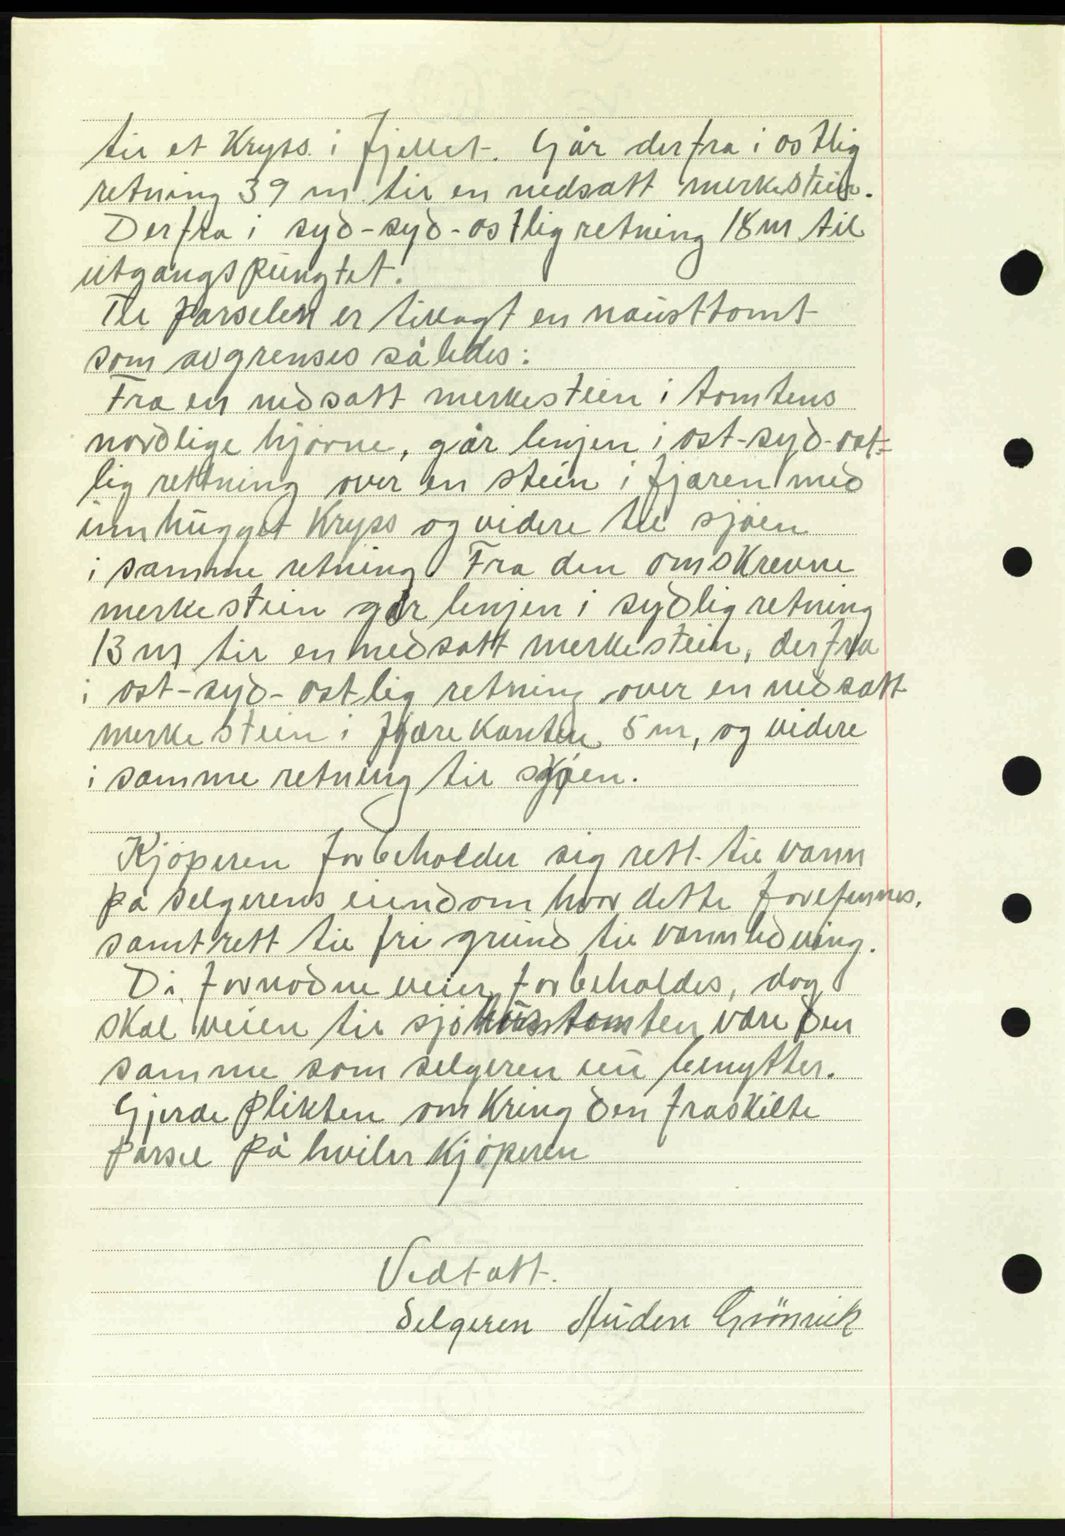 til et Kryss i fjellet. Går derfra i ostlig
retning 39 m til en nedsatt merkestein.
Derfra i syd-syd-ostlig retning 18 m til
utgangspungtet.
Til parselen er tillagt en nausttomt
som avgrenses således:
Fra en nedsatt merkestein i tomtens
nordlige hjorne, går linjen i ost-syd-ost-
lig rettning over en stein i fjæren med
innhugget Kryss og videre til sjøen
i samme retning. Fra den omskrevne
merkestein går linjen i sydlig retning
13 m til en nedsatt merkestein, derfra
i ost-syd-ostlig retning over en nedsatt
merkestein i fjærekanten 5 m, og videre
i samme retning til sjøen.
Kjøperen forbeholder sig rett til vann
på selgerens eiendom hvor dette forefinnes,
samt rett til fri grund til vannledning.
Di fornødne veier forbeholdes, dog
skal veien til sjøhustomten være den
samme som selgeren nu benytter.
Gjerdeplikten omkring den fraskilte
parsel påhviler Kjøperen
Vedtatt.
Selgeren Auden Grönvik